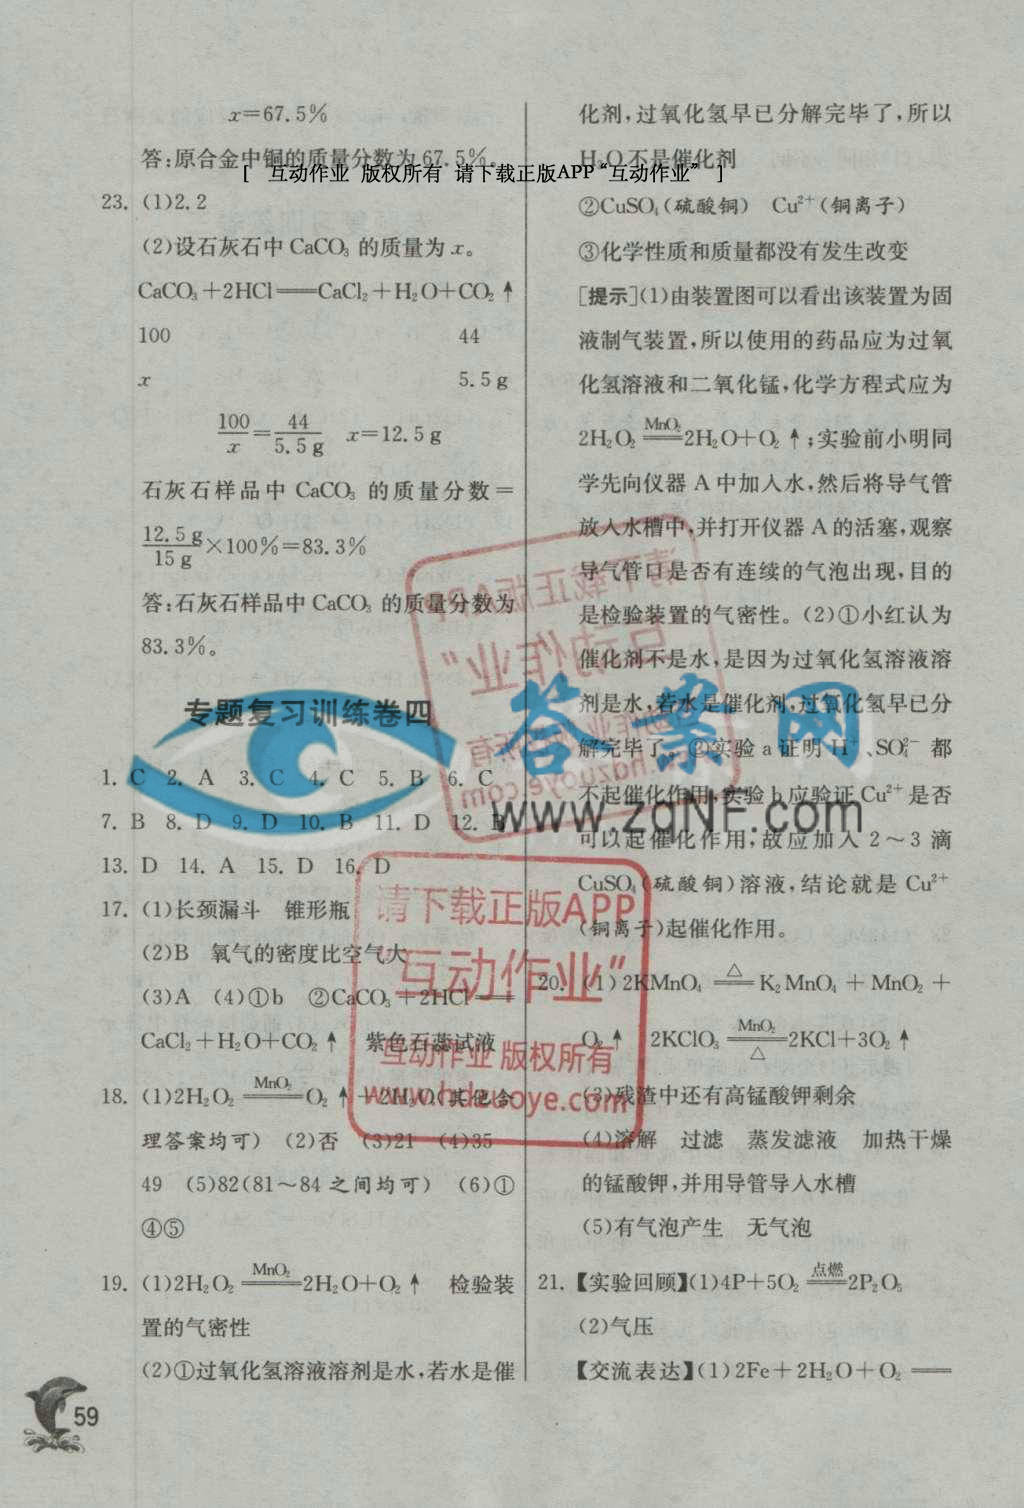 x=67.5%
答:原合金中铜的质量分数为67.5%。
[ 互动作业 版权所有 请下载正版APP“互动作业” ]
23. (1)2.2
(2)设石灰石中CaCO₃的质量为x。
CaCO₃+2HCl══CaCl₂+H₂O+CO₂↑
100 44
x 5.5g
100/x=44/5.5g x=12.5g
石灰石样品中CaCO₃的质量分数=
12.5g/15g×100%=83.3%
答:石灰石样品中CaCO₃的质量分数为
83.3%。
专题复习训练卷四
1. C 2. A 3. C 4. C 5. B 6. C
7. B 8. D 9. D 10. B 11. D 12. B
13. D 14. A 15. D 16. D
17. (1)长颈漏斗 锥形瓶
(2)B 氧气的密度比空气大
(3)A (4)①b ②CaCO₃+2HCl══
CaCl₂+H₂O+CO₂↑ 紫色石蕊试液
18. (1)2H₂O₂ MnO₂══ O₂↑+2H₂O(其他合
理答案均可) (2)否 (3)21 (4)35
49 (5)82(81~84之间均可) (6)①
④⑤
19. (1)2H₂O₂ MnO₂══ 2H₂O+O₂↑ 检验装
置的气密性
(2)①过氧化氢溶液溶剂是水,若水是催
化剂,过氧化氢早已分解完毕了,所以
H₂O不是催化剂
②CuSO₄(硫酸铜) Cu²⁺(铜离子)
③化学性质和质量都没有发生改变
[提示](1)由装置图可以看出该装置为固
液制气装置,所以使用的药品应为过氧
化氢溶液和二氧化锰,化学方程式应为
2H₂O₂ MnO₂══ 2H₂O+O₂↑;实验前小明同
学先向仪器A中加入水,然后将导气管
放入水槽中,并打开仪器A的活塞,观察
导气管口是否有连续的气泡出现,目的
是检验装置的气密性。(2)①小红认为
催化剂不是水,是因为过氧化氢溶液溶
剂是水,若水是催化剂,过氧化氢早已分
解完毕了。②实验a证明H⁺、SO₄²⁻都
不起催化作用,实验b应验证Cu²⁺是否
可以起催化作用,故应加入2~3滴
CuSO₄(硫酸铜)溶液,结论就是Cu²⁺
(铜离子)起催化作用。
20. (1)2KMnO₄ △══ K₂MnO₄+MnO₂+
O₂↑ 2KClO₃ MnO₂══△ 2KCl+3O₂↑
(3)残渣中还有高锰酸钾剩余
(4)溶解 过滤 蒸发滤液 加热干燥
的锰酸钾,并用导管导入水槽
(5)有气泡产生 无气泡
21.【实验回顾】(1)4P+5O₂ 点燃══ 2P₂O₅
(2)气压
【交流表达】(1)2Fe+2H₂O+O₂══
59
答案网
www.zqNF.com
请下载正版APP
“互动作业”
互动作业 版权所有
www.hdzuoye.com
请下载正版APP
“互动作业”
互动作业 版权所有